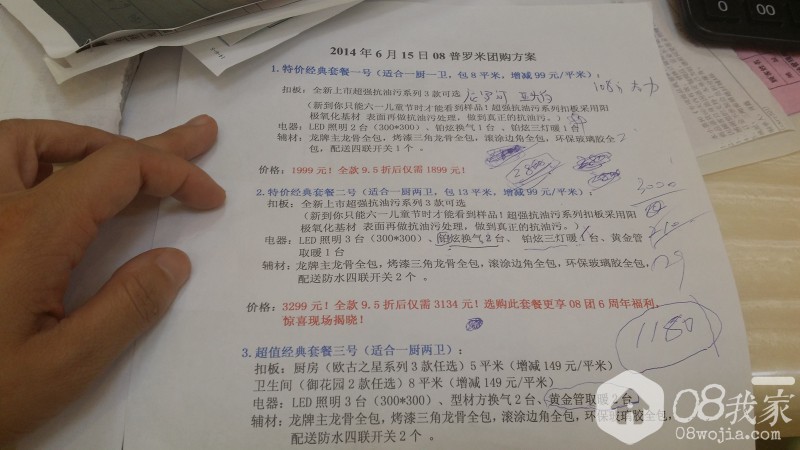 2014 年 6 月 15 日 08 普罗米团购方案
1. 特价经典套餐一号（适合一厨一卫，包 8 平米，增减 99 元/平米）：
扣板：全新上市超强抗油污系列 3 款可选
（新到你只能六一儿童节时才能看到样品！超强抗油污系列扣板采用阳
极氧化基材 表面再做抗油污处理，做到真正的抗油污。）
电器：LED 照明 2 台（300*300）、铂炫换气 1 台 、铂炫三灯暖 1 台
辅材：龙牌主龙骨全包，烤漆三角龙骨全包，滚涂边角全包，环保玻璃胶全
包，配送四联开关 1 个 。
2800
价格：1999 元！全款 9.5 折后仅需 1899 元！
2. 特价经典套餐二号（适合一厨两卫，包 13 平米，增减 99 元/平米）：
扣板：全新上市超强抗油污系列 3 款可选
（新到你只能六一儿童节时才能看到样品！超强抗油污系列扣板采用阳
极氧化基材 表面再做抗油污处理，做到真正的抗油污。）
电器：LED 照明 3 台（300*300）、铂炫换气 2 台、 铂炫三灯暖 1 台、黄金管
取暖 1 台
辅材：龙牌主龙骨全包，烤漆三角龙骨全包，滚涂边角全包，环保玻璃胶全包，
配送防水四联开关 2 个 。
价格：3299 元！全款 9.5 折后仅需 3134 元！选购此套餐更享 08 团 6 周年福利，
惊喜现场揭晓！
1180
3. 超值经典套餐三号（适合一厨两卫）：
扣板：厨房（欧古之星系列 3 款任选）5 平米（增减 149 元/平米）
卫生间（御花园 2 款任选）8 平米（增减 149 元/平米）
电器：LED 照明 3 台（300*300）、型材方换气 2 台、黄金管取暖 2 台
辅材：龙牌主龙骨全包，烤漆三角龙骨全包，滚涂边角全包，环保玻璃胶全包，
配送防水四联开关 2 个 。
08我家
08wojia.com
00